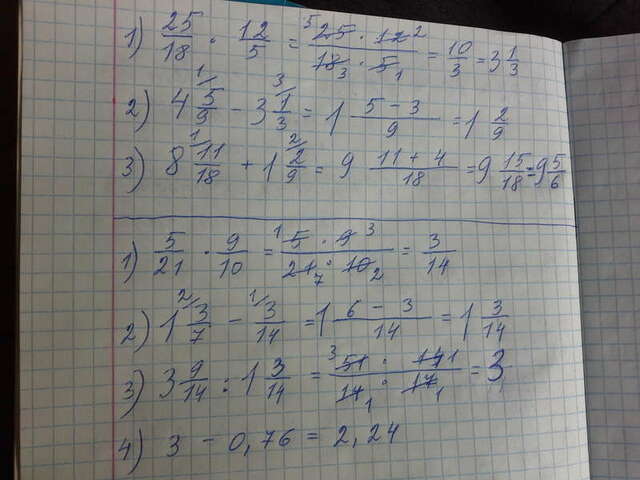 1) 25/18 · 12/5 = 25 · 12 / 18 · 5 = 10/3 = 3 1/3
2) 4 5/9 - 3 1/3 = 1 5 - 3 / 9 = 1 2/9
3) 8 11/18 + 1 2/9 = 9 11 + 4 / 18 = 9 15/18 = 9 5/6
1) 5/21 · 9/10 = 5 · 9 / 21 · 10 = 3/14
2) 1 3/7 - 3/14 = 1 6 - 3 / 14 = 1 3/14
3) 3 9/14 : 1 3/14 = 51 · 14 / 14 · 17 = 3
4) 3 - 0,76 = 2,24